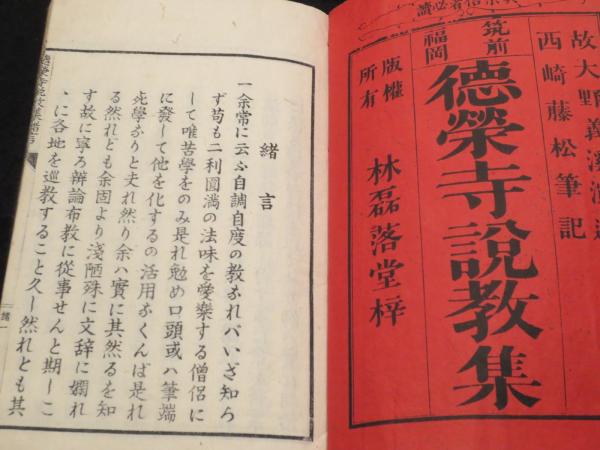 信者必讀
故大野義溪演述
西崎藤松筆記
筑前
福岡
德榮寺說教集
版權
所有
林磊落堂梓
緒言
一余常に云ふ自調自度の教なれバいざ知ら
ず苟も二利圓滿の法味を愛樂する僧侶に
して唯苦學をのみ是れ勉め口頭或ハ筆端
に發して他を化するの活用なくんば是れ
死學なりと夫れ然り余ハ實に其然るを知
る然れども余固より淺陋殊に文辞に嫺れ
ず故に寧ろ辯論布教に從事せんと期しこ
ヽに各地を巡教すること久し然れども其
緒一